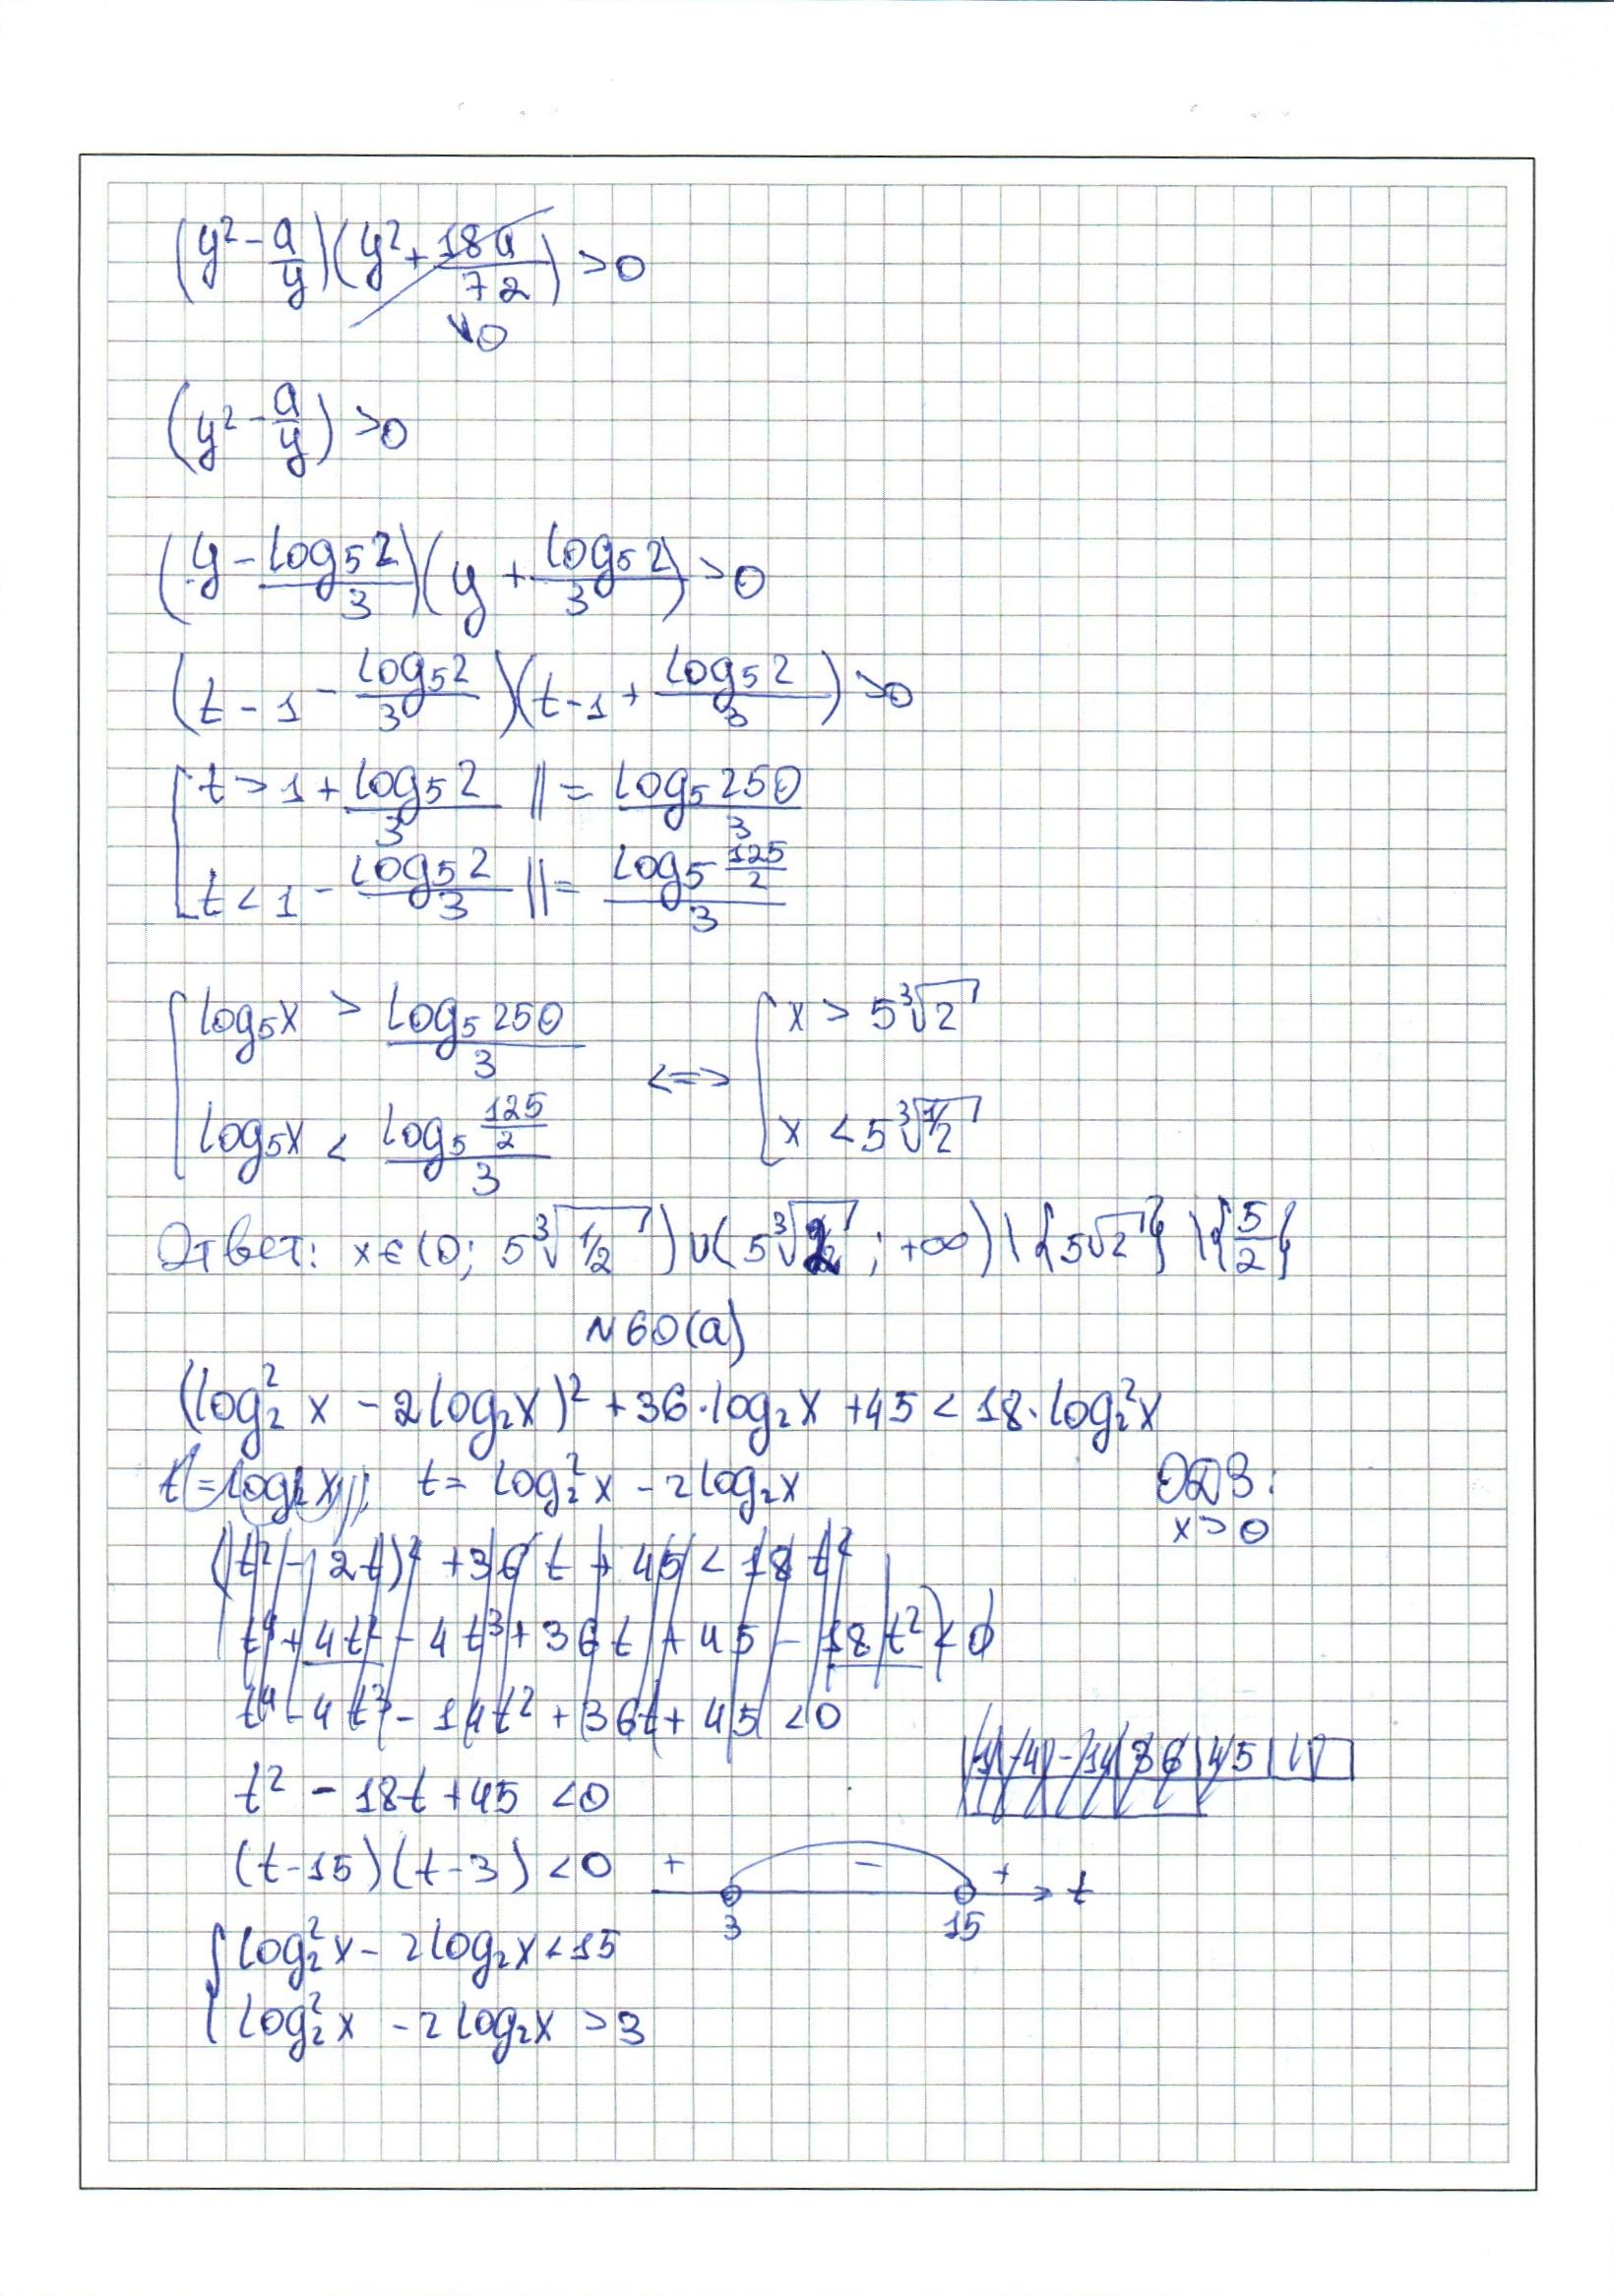 (y² - a/y)(y² + 18a/72) > 0
∨0
(y² - a/y) > 0
(y - log₅2/3)(y + log₅2/3) > 0
(t - 1 - log₅2/3)(t - 1 + log₅2/3) > 0
[ t > 1 + log₅2/3 || = log₅250/3
t < 1 - log₅2/3 || = log₅(125/2)/3
[ log₅x > log₅250/3 <=> [ x > 5∛2
log₅x < log₅(125/2)/3 x < 5∛(1/2)
Ответ: x ∈ (0; 5∛(1/2)) ∪ (5∛2; +∞) \ {5√2} \ {5/2}
N60(а)
(log₂²x - 2log₂x)² + 36·log₂x + 45 < 18·log₂²x
t = log₂x t = log₂²x - 2log₂x ОДЗ:
x > 0
(t² - 2t)² + 36t + 45 < 18t²
t⁴ + 4t² - 4t³ + 36t + 45 - 18t² < 0
t⁴ - 4t³ - 14t² + 36t + 45 < 0
1 -4 -14 36 45
t² - 18t + 45 < 0
(t-15)(t-3) < 0 + - + t
3 15
{ log₂²x - 2log₂x < 15
log₂²x - 2log₂x > 3